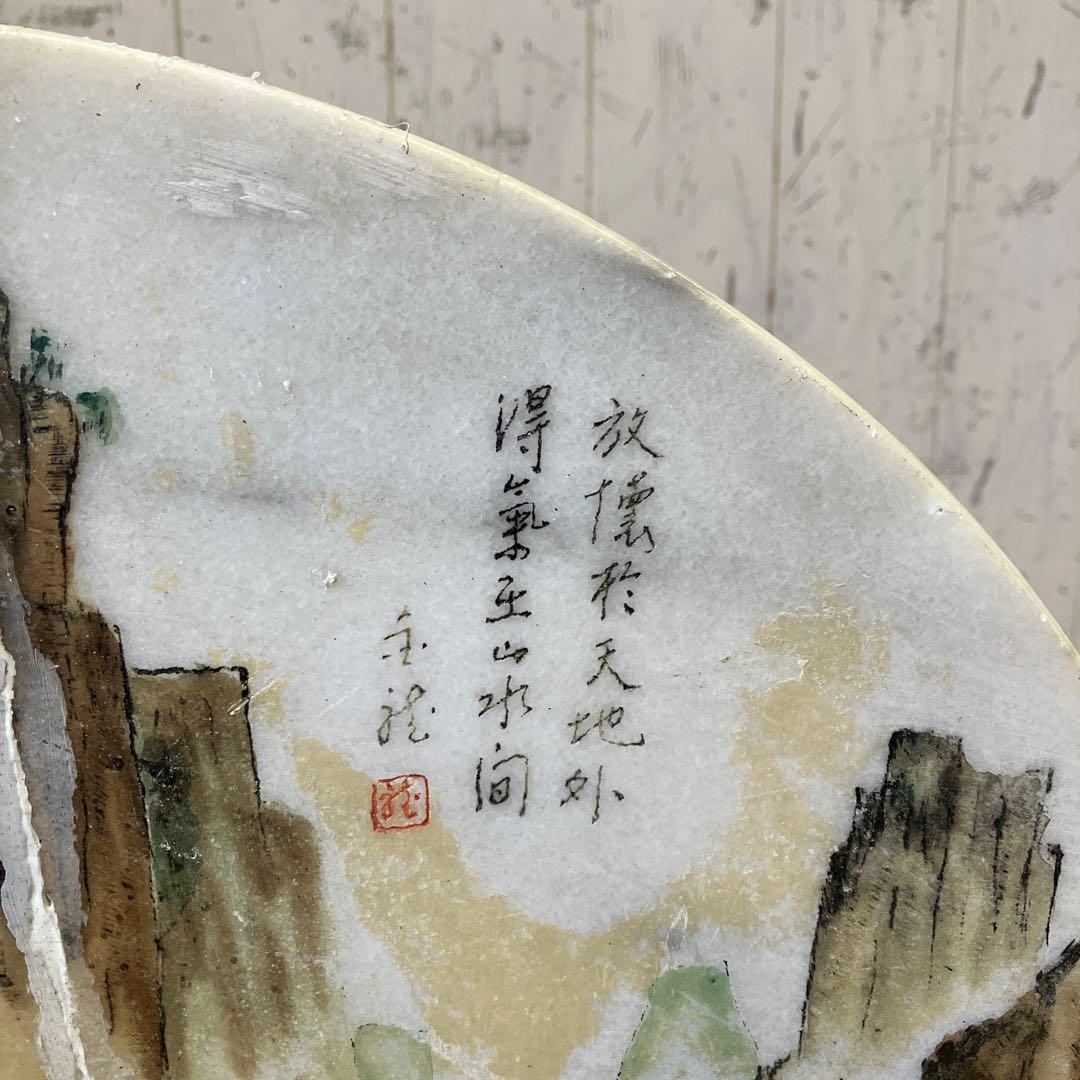 放懷於天地外
得氣在山水間
金龍
龍